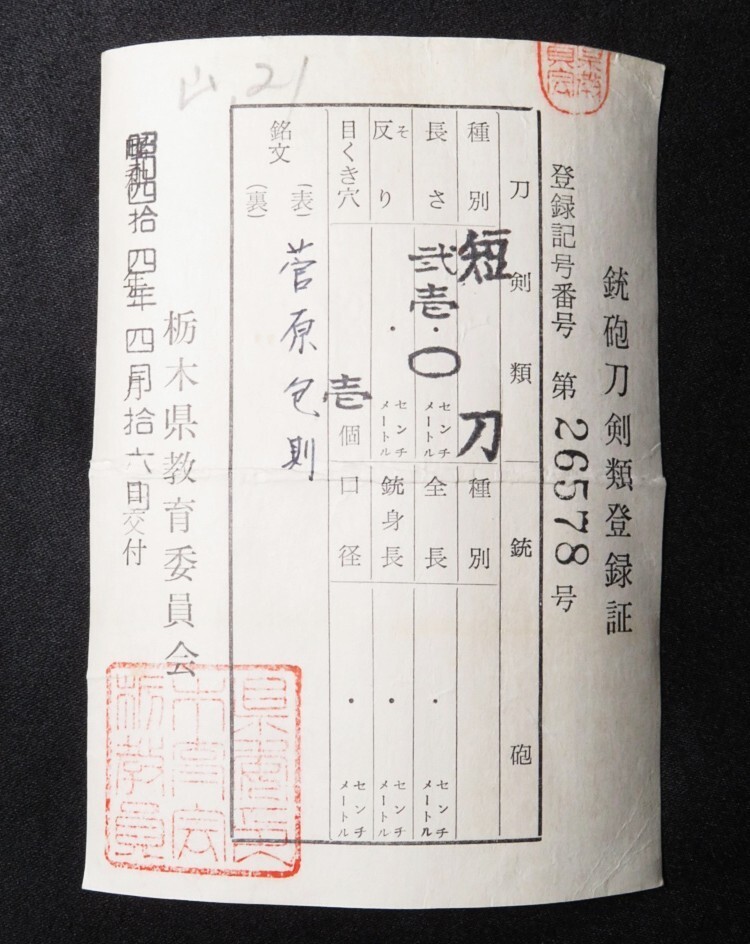 銃砲刀剣類登録証
登録記号番号 第 26578 号
刀剣類 銃砲
種別 短刀 種別
長さ 弐壱.〇 センチメートル 全長 . センチメートル
反り そ . センチメートル 銃身長 . センチメートル
目くき穴 壱 個 口径 . センチメートル
銘文 (表) 菅原包則
(裏)
栃木県教育委員会
昭和四拾四年四月拾六日交付
山.21